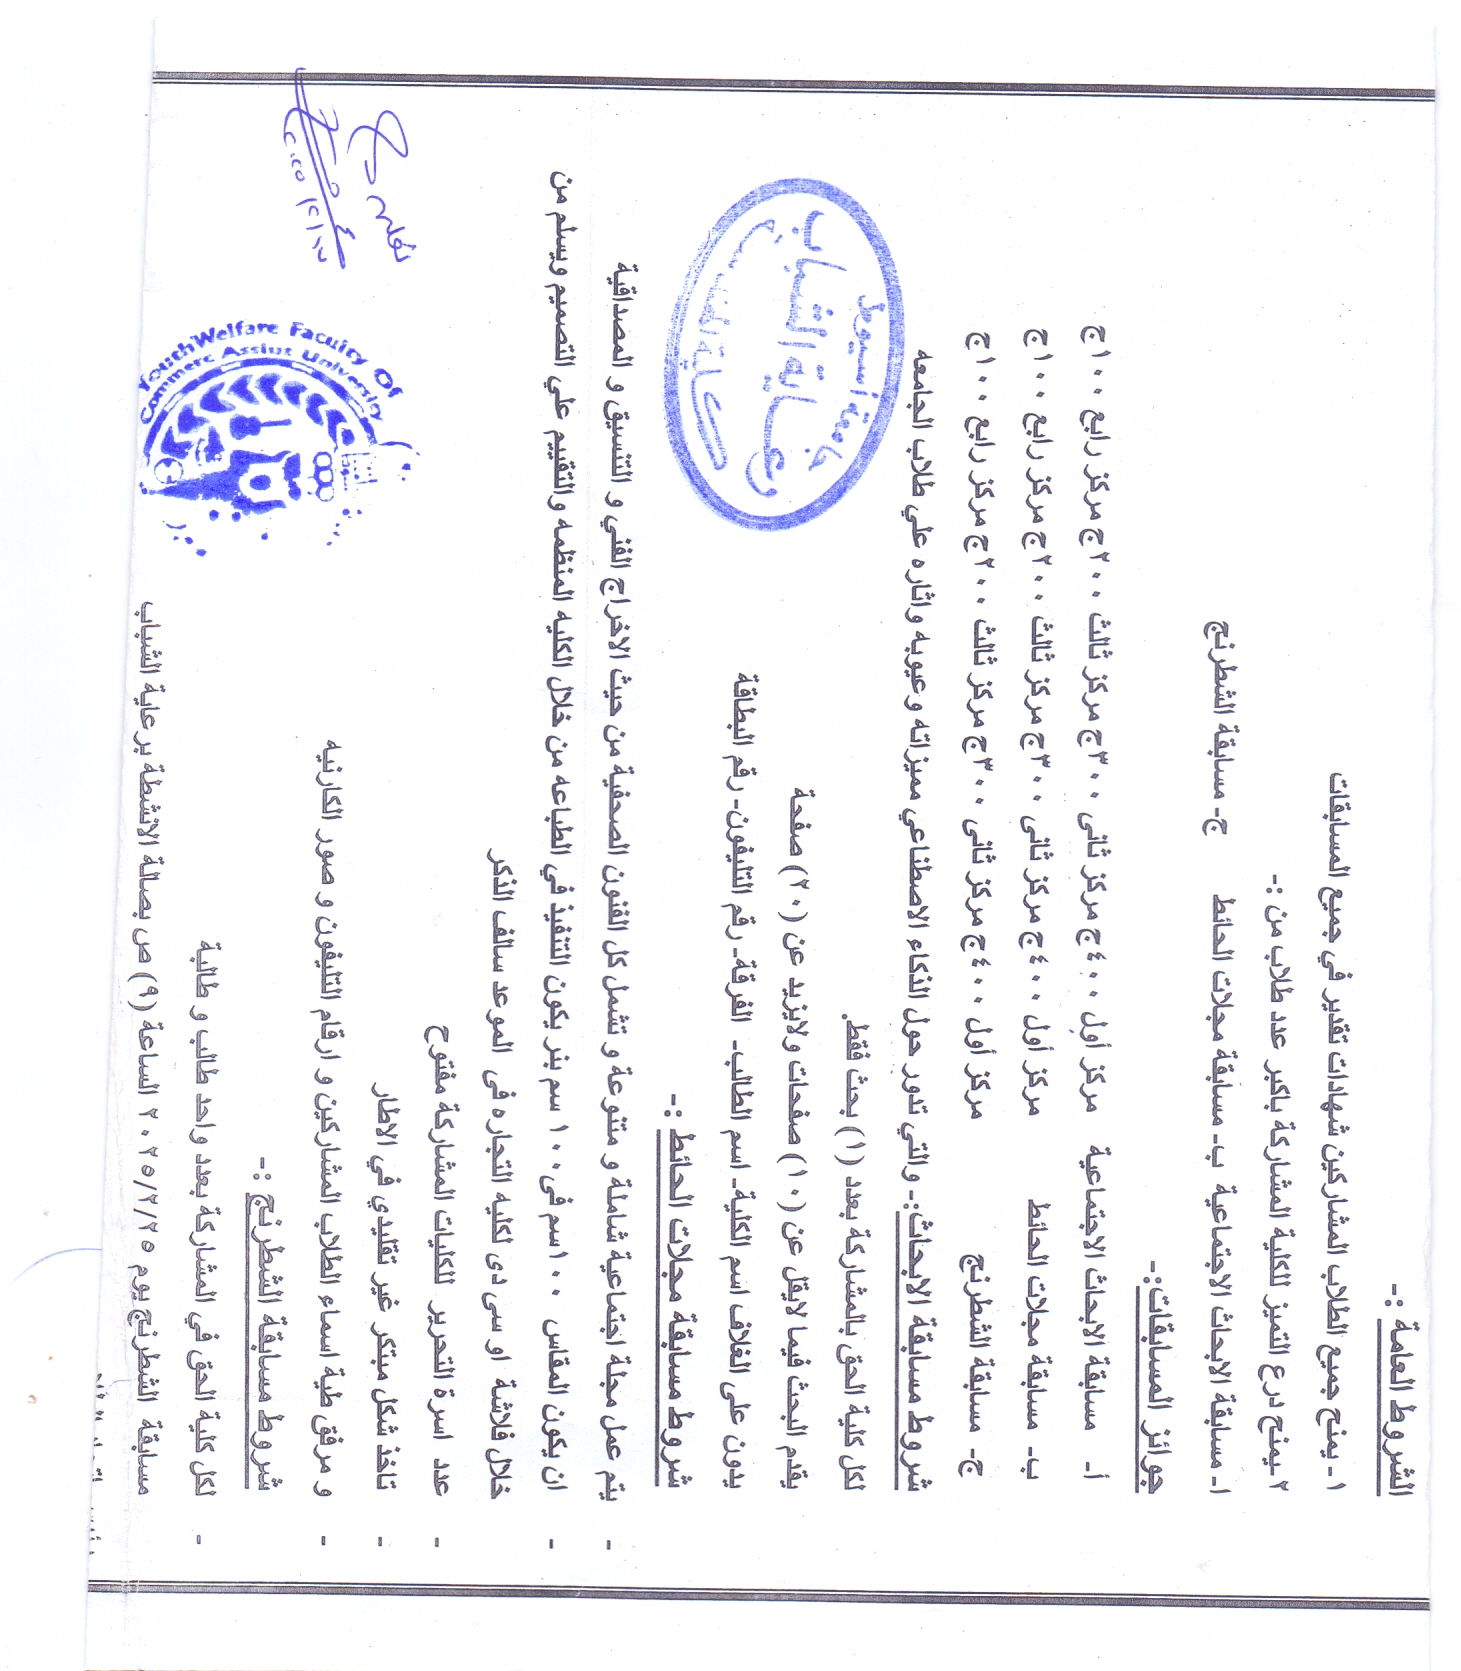 الشروط العامة :-
١- يمنح جميع الطلاب المشاركين شهادات تقدير في جميع المسابقات
٢-يمنح درع التميز للكلية المشاركة باكبر عدد طلاب من :-
ا- مسابقة الابحاث الاجتماعية ب- مسابقة مجلات الحائط ج- مسابقة الشطرنج
جوائز المسابقات:-
أ- مسابقة الابحاث الاجتماعية مركز أول ٤٠٠ج مركز ثانى ٣٠٠ج مركز ثالث ٢٠٠ج مركز رابع ١٠٠ج
ب- مسابقة مجلات الحائط مركز أول ٤٠٠ج مركز ثانى ٣٠٠ج مركز ثالث ٢٠٠ج مركز رابع ١٠٠ج
ج- مسابقة الشطرنج مركز أول ٤٠٠ج مركز ثانى ٣٠٠ج مركز ثالث ٢٠٠ج مركز رابع ١٠٠ج
شروط مسابقة الابحاث:- والتي تدور حول الذكاء الاصطناعي مميزاته وعيوبه واثاره علي طلاب الجامعه
لكل كلية الحق بالمشاركة بعدد (١) بحث فقط.
يقدم البحث فيما لايقل عن (١٠) صفحات ولايزيد عن (٢٠) صفحة
يدون على الغلاف اسم الكلية- اسم الطالب- الفرقة- رقم التليفون- رقم البطاقة
شروط مسابقة مجلات الحائط :-
- يتم عمل مجلة اجتماعية شاملة و متنوعة و تشمل كل الفنون الصحفية من حيث الاخراج الفني و التنسيق و المصداقية
- ان يكون المقاس ١٠٠سم فى ١٠٠سم بنر يكون التنفيذ في الطباعه من خلال الكليه المنظمه والتقييم علي التصميم ويسلم من
خلال فلاشة او سى دى لكليه التجاره فى الموعد سالف الذكر
- عدد اسرة التحرير للكليات المشاركة مفتوح
- تاخذ شكل مبتكر غير تقليدي في الاطار
- و مرفق طية اسماء الطلاب المشاركين و ارقام التليفون و صور الكارنيه
شروط مسابقة الشطرنج :-
- لكل كلية الحق في المشاركة بعدد واحد طالب و طالبة
مسابقة الشطرنج يوم ٢٠٢٥/٢/٢٥ الساعة (٩) ص بصالة الانشطة برعاية الشباب
جامعة أسيوط
رعاية الشباب
Youth Welfare Faculty Of
Commerce Assiut University